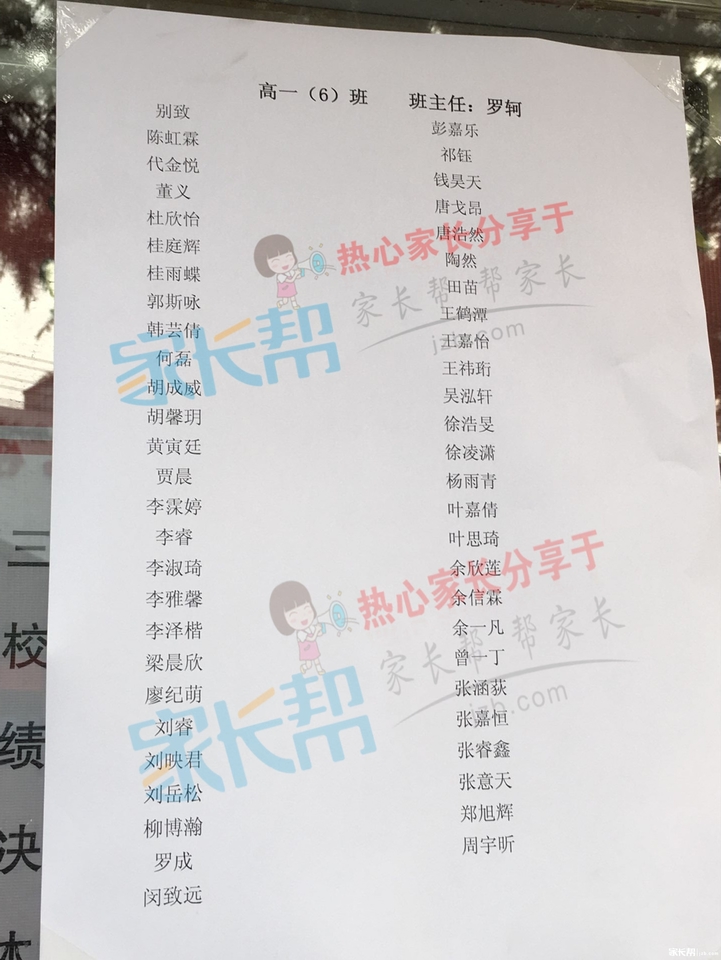 高一（6）班 班主任：罗轲
别致
陈虹霖
代金悦
董义
杜欣怡
桂庭辉
桂雨蝶
郭斯咏
韩芸倩
何磊
胡成威
胡馨玥
黄寅廷
贾晨
李霂婷
李睿
李淑琦
李雅馨
李泽楷
梁晨欣
廖纪萌
刘睿
刘映君
刘岳松
柳博瀚
罗成
闵致远
彭嘉乐
祁钰
钱昊天
唐戈昂
唐浩然
陶然
田苗
王鹤潭
王嘉怡
王祎珩
吴泓轩
徐浩旻
徐凌潇
杨雨青
叶嘉倩
叶思琦
余欣莲
余信霖
余一凡
曾一丁
张涵荻
张嘉恒
张睿鑫
张意天
郑旭辉
周宇昕
热心家长分享于
家长帮
家长帮 帮家长
jzb.com
热心家长分享于
家长帮
家长帮 帮家长
jzb.com
三
校
绩
决
家长帮